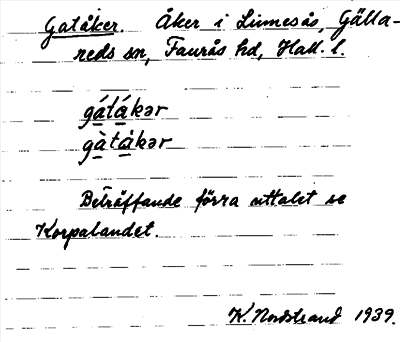 Gatåker. Åker i Linnesås, Gälla-
reds sn, Faurås hd, Hall. l.
gátákər
gàtàkər
Beträffande förra uttalet se
Korpalandet.
K. Nordstrand 1939.